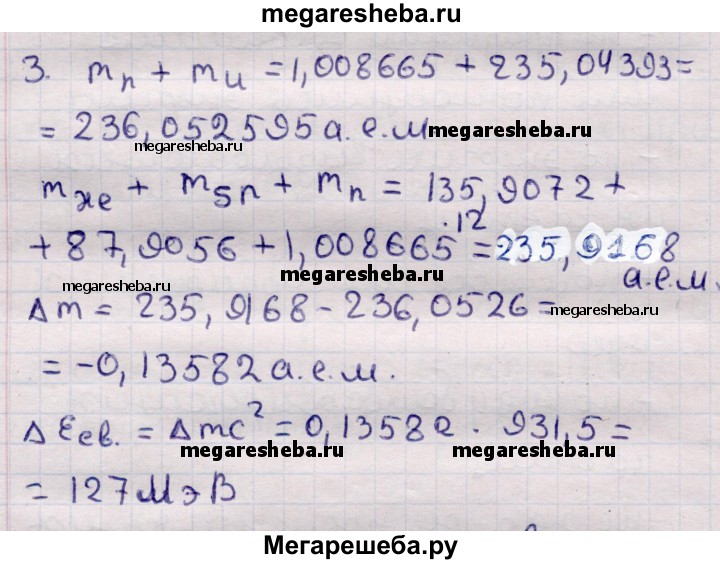 megaresheba.ru
3. mₙ + mᵤ = 1,008665 + 235,04393 =
= 236,052595 а.е.м megaresheba.ru
megaresheba.ru
m_Xe + m_Sn + mₙ = 135,9072 +
+ 87,9056 + 1,008665 · 12 = 235,9168
megaresheba.ru
megaresheba.ru а.е.м.
Δm = 235,9168 - 236,0526 =
megaresheba.ru
= -0,13582 а.е.м.
ΔEсв. = Δmc² = 0,13582 · 931,5 =
megaresheba.ru megaresheba.ru
= 127 МэВ
Мегарешеба.ру